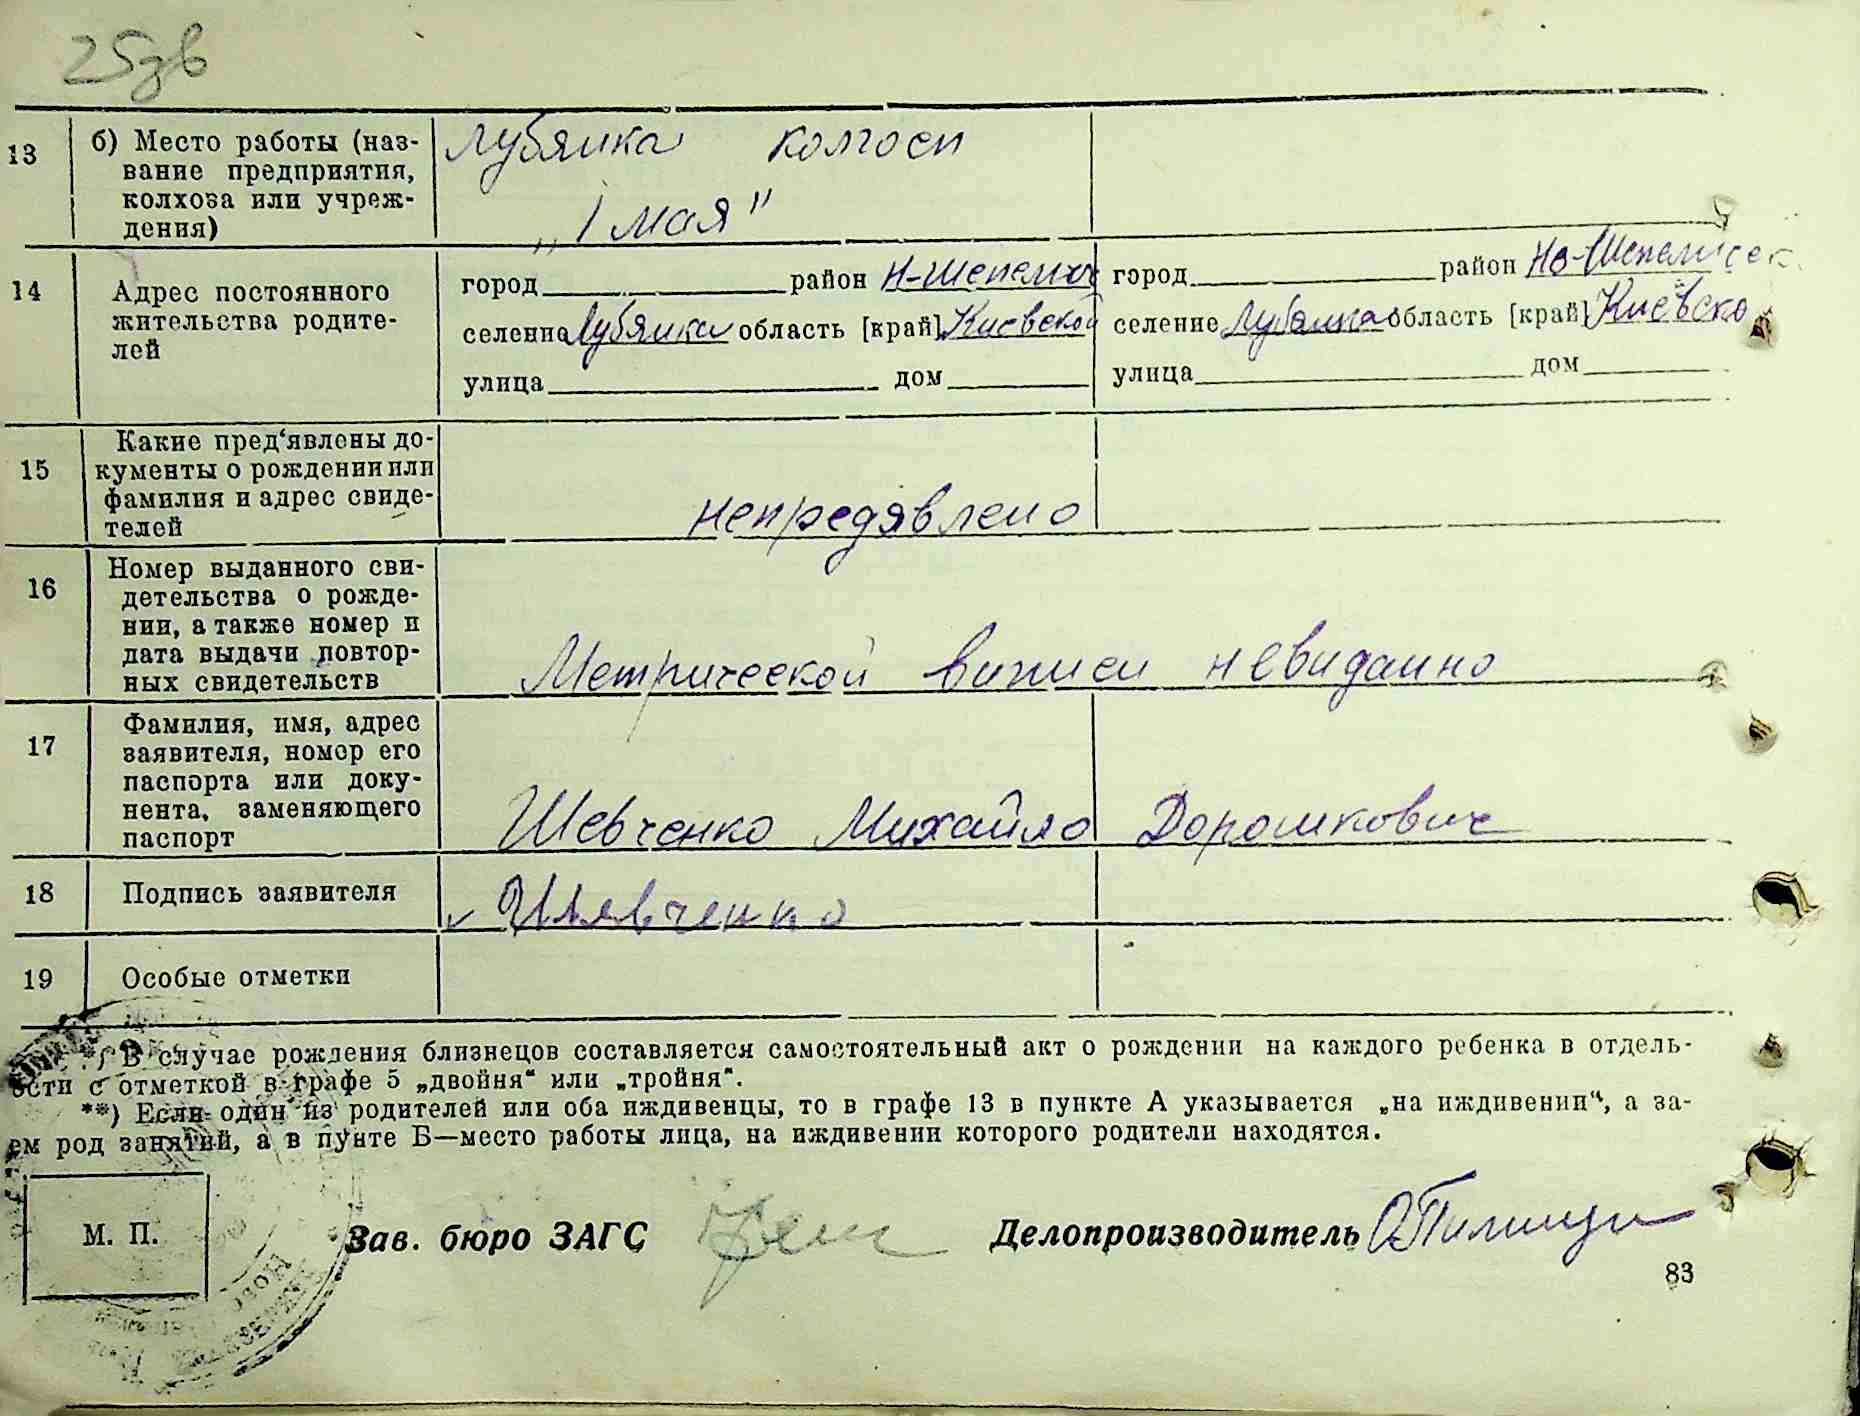 25зв
13 б) Место работы (наз-
вание предприятия,
колхоза или учреж-
дения)
Лубянка колгосп
„1 мая"
14 Адрес постоянного
жительства родите-
лей
город район Н-Шепелич
селение Лубянка область [край] Киевской
улица дом
город район Но-Шепеличск.
селение Лубянка область [край] Киевско
улица дом
15 Какие пред‘явлены до-
кументы о рождении или
фамилия и адрес свиде-
телей
непредявлено
16 Номер выданного сви-
детельства о рожде-
нии, а также номер и
дата выдачи повтор-
ных свидетельств
Метрической виписи невиданно
17 Фамилия, имя, адрес
заявителя, номер его
паспорта или доку-
нента, заменяющего
паспорт
Шевченко Михайло Дорошкович
18 Подпись заявителя
Шевченко
19 Особые отметки
*) В случае рождения близнецов составляется самостоятельный акт о рождении на каждого ребенка в отдель-
ости с отметкой в графе 5 „двойня“ или „тройня“.
**) Если один из родителей или оба иждивенцы, то в графе 13 в пункте А указывается „на иждивении“, а за-
ем род занятий, а в пункте Б—место работы лица, на иждивении которого родители находятся.
М. П.
Зав. бюро ЗАГС
Делопроизводитель
83